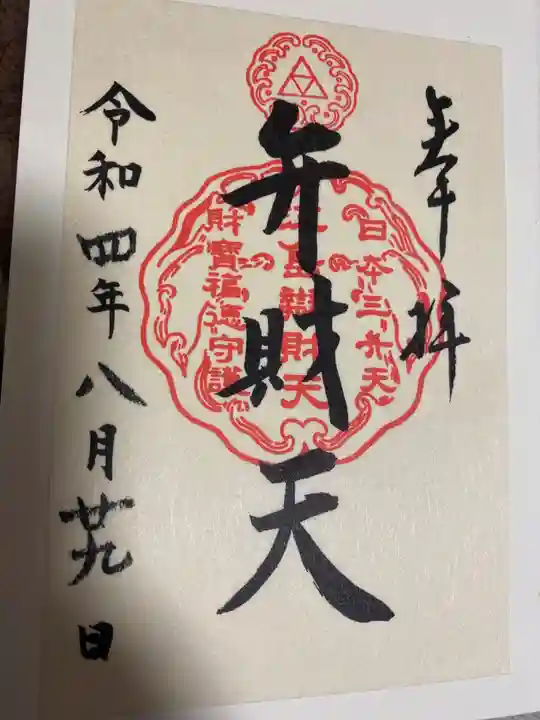 奉拝
日本三弁天
弁財天
財寶福德守護
令和四年八月廿九日